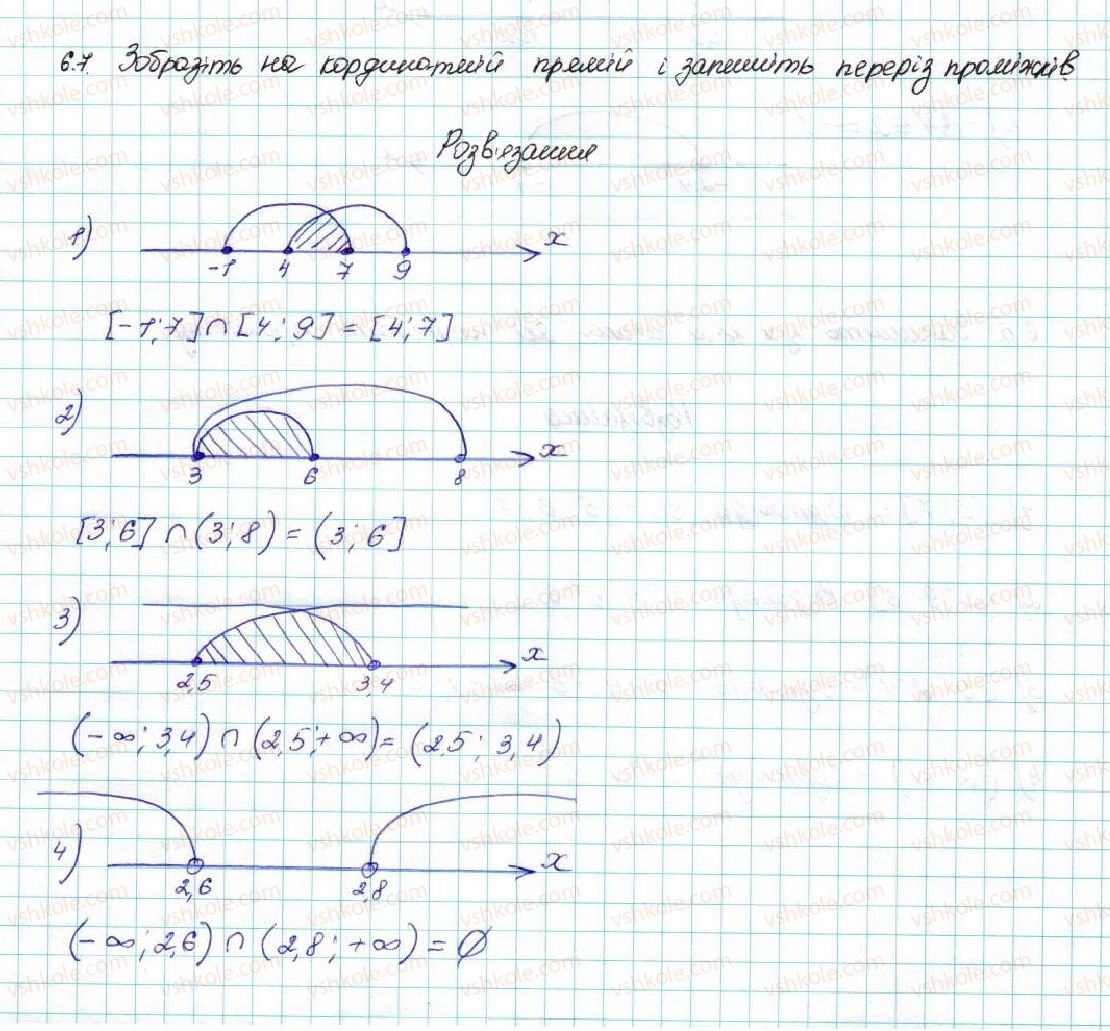 6.7. Зобразіть на кординатній прямій і запишіть переріз проміжків
Розв'язання
1)
x
-1 4 7 9
[-1;7]∩[4;9]=[4;7]
2)
x
3 6 8
[3;6]∩(3;8)=(3;6]
3)
x
2,5 3,4
(-∞;3,4)∩(2,5;+∞)=(2,5; 3,4)
4)
x
2,6 2,8
(-∞;2,6)∩(2,8;+∞)=∅
vshkole.com